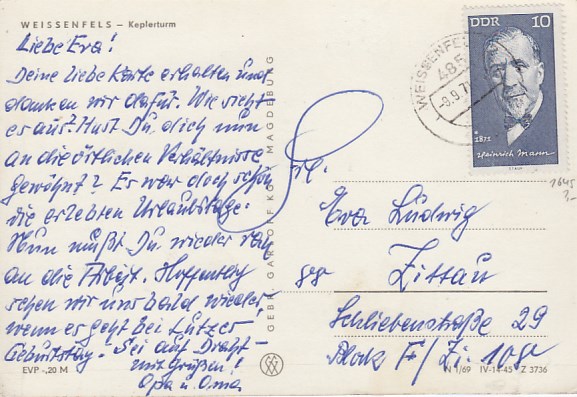 WEISSENFELS – Keplerturm
Liebe Eva!
Deine liebe Karte erhalten und
danken wir dafür. Wie sieht
es aus? Hast Du dich nun
an die örtlichen Verhältnisse
gewöhnt? Es war doch schön
die erlebten Urlaubstage.
Nun mußt Du wieder ran
an die Arbeit. Hoffentlich
sehen wir uns bald wieder,
wenn es geht bei Lutzes
Geburtstag. Sei auf Draht –
mit Grüßen!
Opa u. Oma
EVP -,20 M
GEBR. GARLOFF KG MAGDEBURG
WEISSENFELS
485
-9.9.71
DDR 10
* 1871
Heinrich Mann
1645
Frl.
Eva Ludwig
Zittau
Schliebenstraße 29
Block F/Zi. 108
N 1/69 IV-14-45 Z 3736